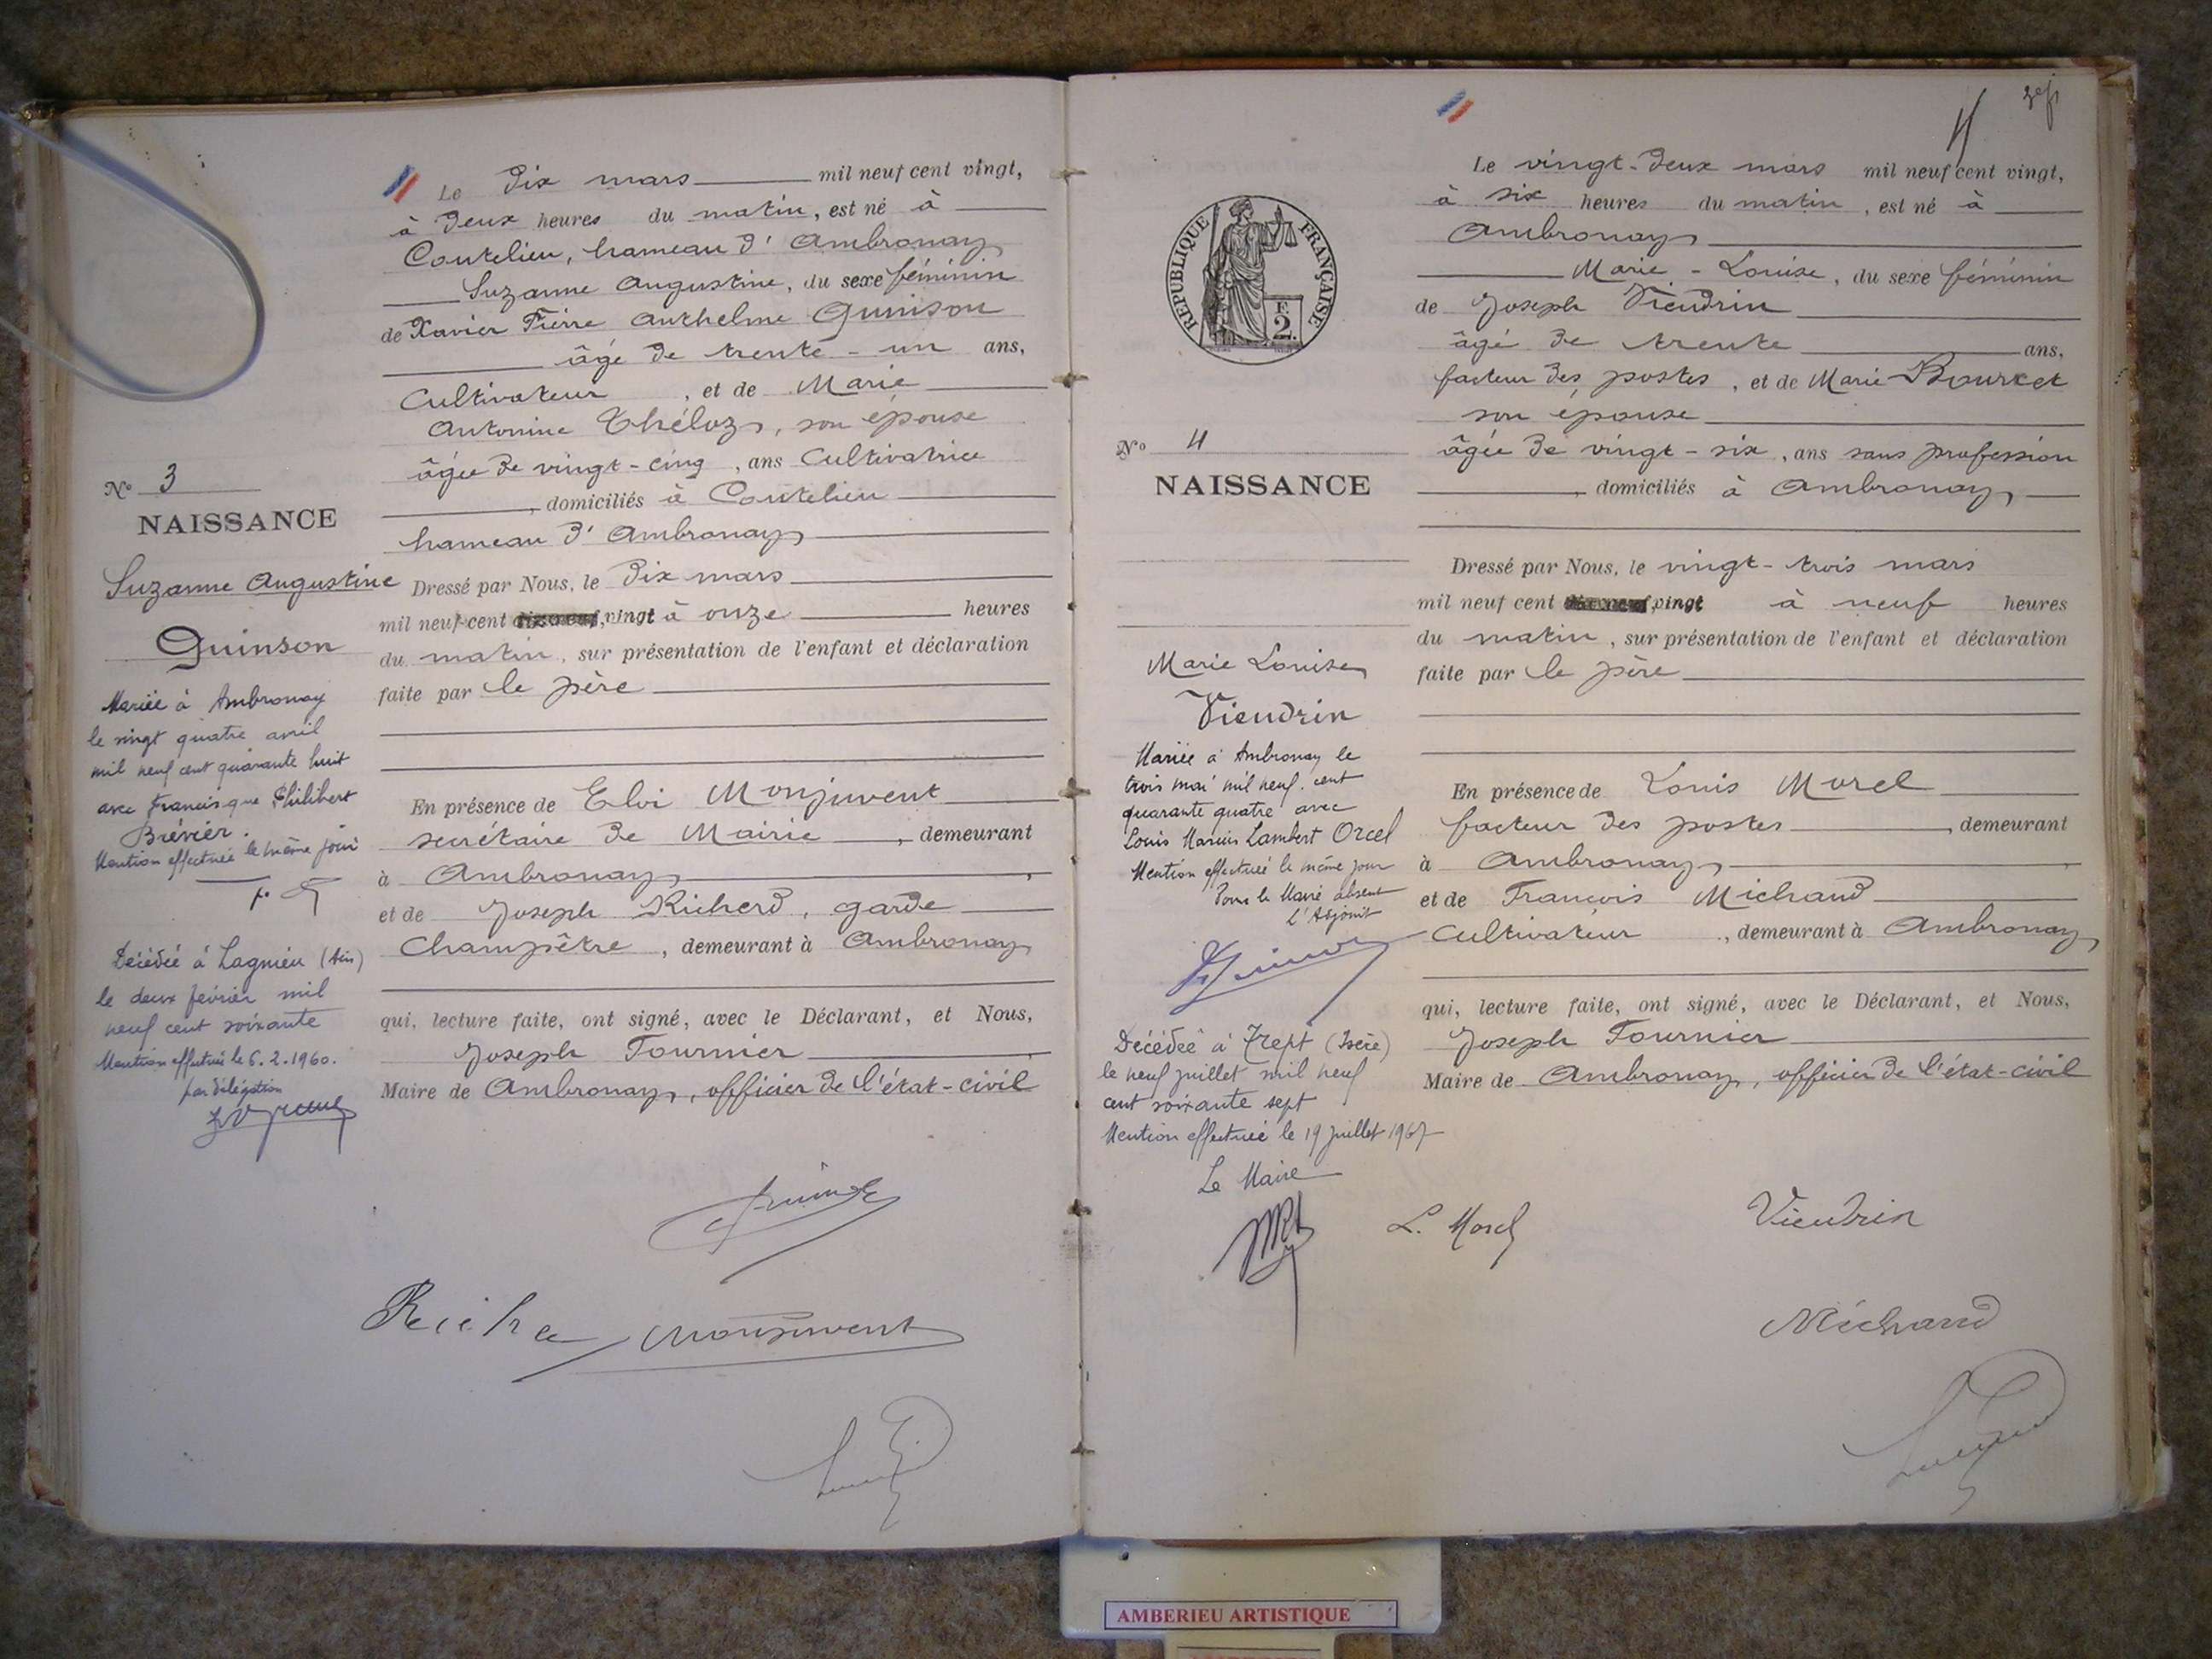 Le dix mars mil neuf cent vingt,
à deux heures du matin, est né à
Coutelieu, hameau d'Ambronay
Suzanne Augustine, du sexe féminin
de Xavier Pierre Anthelme Quinson
âgé de trente-un ans,
Cultivateur, et de Marie
Antonine Théloz, son épouse
âgée de vingt-cinq, ans Cultivatrice
, domiciliés à Coutelieu
hameau d'Ambronay
Nº 3
NAISSANCE
Suzanne Augustine
Quinson
Mariée à Ambronay
le vingt quatre avril
mil neuf cent quarante huit
avec Francisque Philibert
Brévier.
Mention effectuée le même jour
Décédée à Lagnieu (Ain)
le deux février mil
neuf cent soixante
Mention effectuée le 6.2.1960.
par délégation
Dressé par Nous, le dix mars
mil neuf cent vingt à onze heures
du matin, sur présentation de l'enfant et déclaration
faite par le père
En présence de Eloi Monjuvent
secrétaire de Mairie, demeurant
à Ambronay,
et de Joseph Richerd, garde
Champêtre, demeurant à Ambronay
qui, lecture faite, ont signé, avec le Déclarant, et Nous,
Joseph Tournier
Maire de Ambronay, officier de l'état-civil
Monjuvent
4
Le vingt-deux mars mil neuf cent vingt,
à six heures du matin, est né à
Ambronay
Marie-Louise, du sexe féminin
de Joseph Vieudrin
âgé de trente ans,
facteur des postes, et de Marie Bourcet
son épouse
âgée de vingt-six, ans sans profession
, domiciliés à Ambronay
REPUBLIQUE FRANÇAISE
E
2.
Nº 4
NAISSANCE
Marie Louise
Vieudrin
Mariée à Ambronay le
trois mai mil neuf cent
quarante quatre avec
Louis Marius Lambert Orcel
Mention effectuée le même jour
Pour le Maire absent
L'Adjoint
Décédée à Trept (Isère)
le neuf juillet mil neuf
cent soixante sept
Mention effectuée le 19 juillet 1967
Le Maire
Dressé par Nous, le vingt-trois mars
mil neuf cent vingt à neuf heures
du matin, sur présentation de l'enfant et déclaration
faite par le père
En présence de Louis Morel
facteur des postes, demeurant
à Ambronay,
et de François Michaud
Cultivateur, demeurant à Ambronay
qui, lecture faite, ont signé, avec le Déclarant, et Nous,
Joseph Tournier
Maire de Ambronay, officier de l'état-civil
L. Morel
Vieudrin
Michaud
AMBERIEU ARTISTIQUE